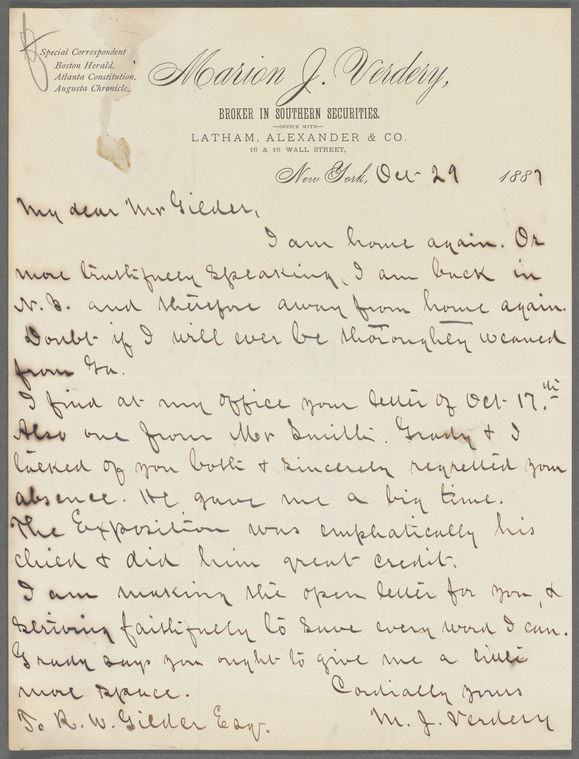 Special Correspondent
Boston Herald.
Atlanta Constitution.
Augusta Chronicle.
Marion J. Verdery,
BROKER IN SOUTHERN SECURITIES.
—OFFICE WITH—
LATHAM, ALEXANDER & CO.
16 & 18 WALL STREET,
New York, Oct 29 1887
My dear Mr Gilder,
I am home again. Or
more truthfully speaking, I am back in
N.Y. and therefore away from home again.
Doubt if I will ever be thoroughly weaned
from Ga.
I find at my office your letter of Oct 17.th
Also one from Mr Smith. Grady & I
talked of you both & sincerely regretted your
absence. He gave me a big time.
The Exposition was emphatically his
child & did him great credit.
I am making the open letter for you, &
striving faithfully to save every word I can.
Grady says you ought to give me a little
more space. Cordially yours
To R. W. Gilder Esq. M. J. Verdery